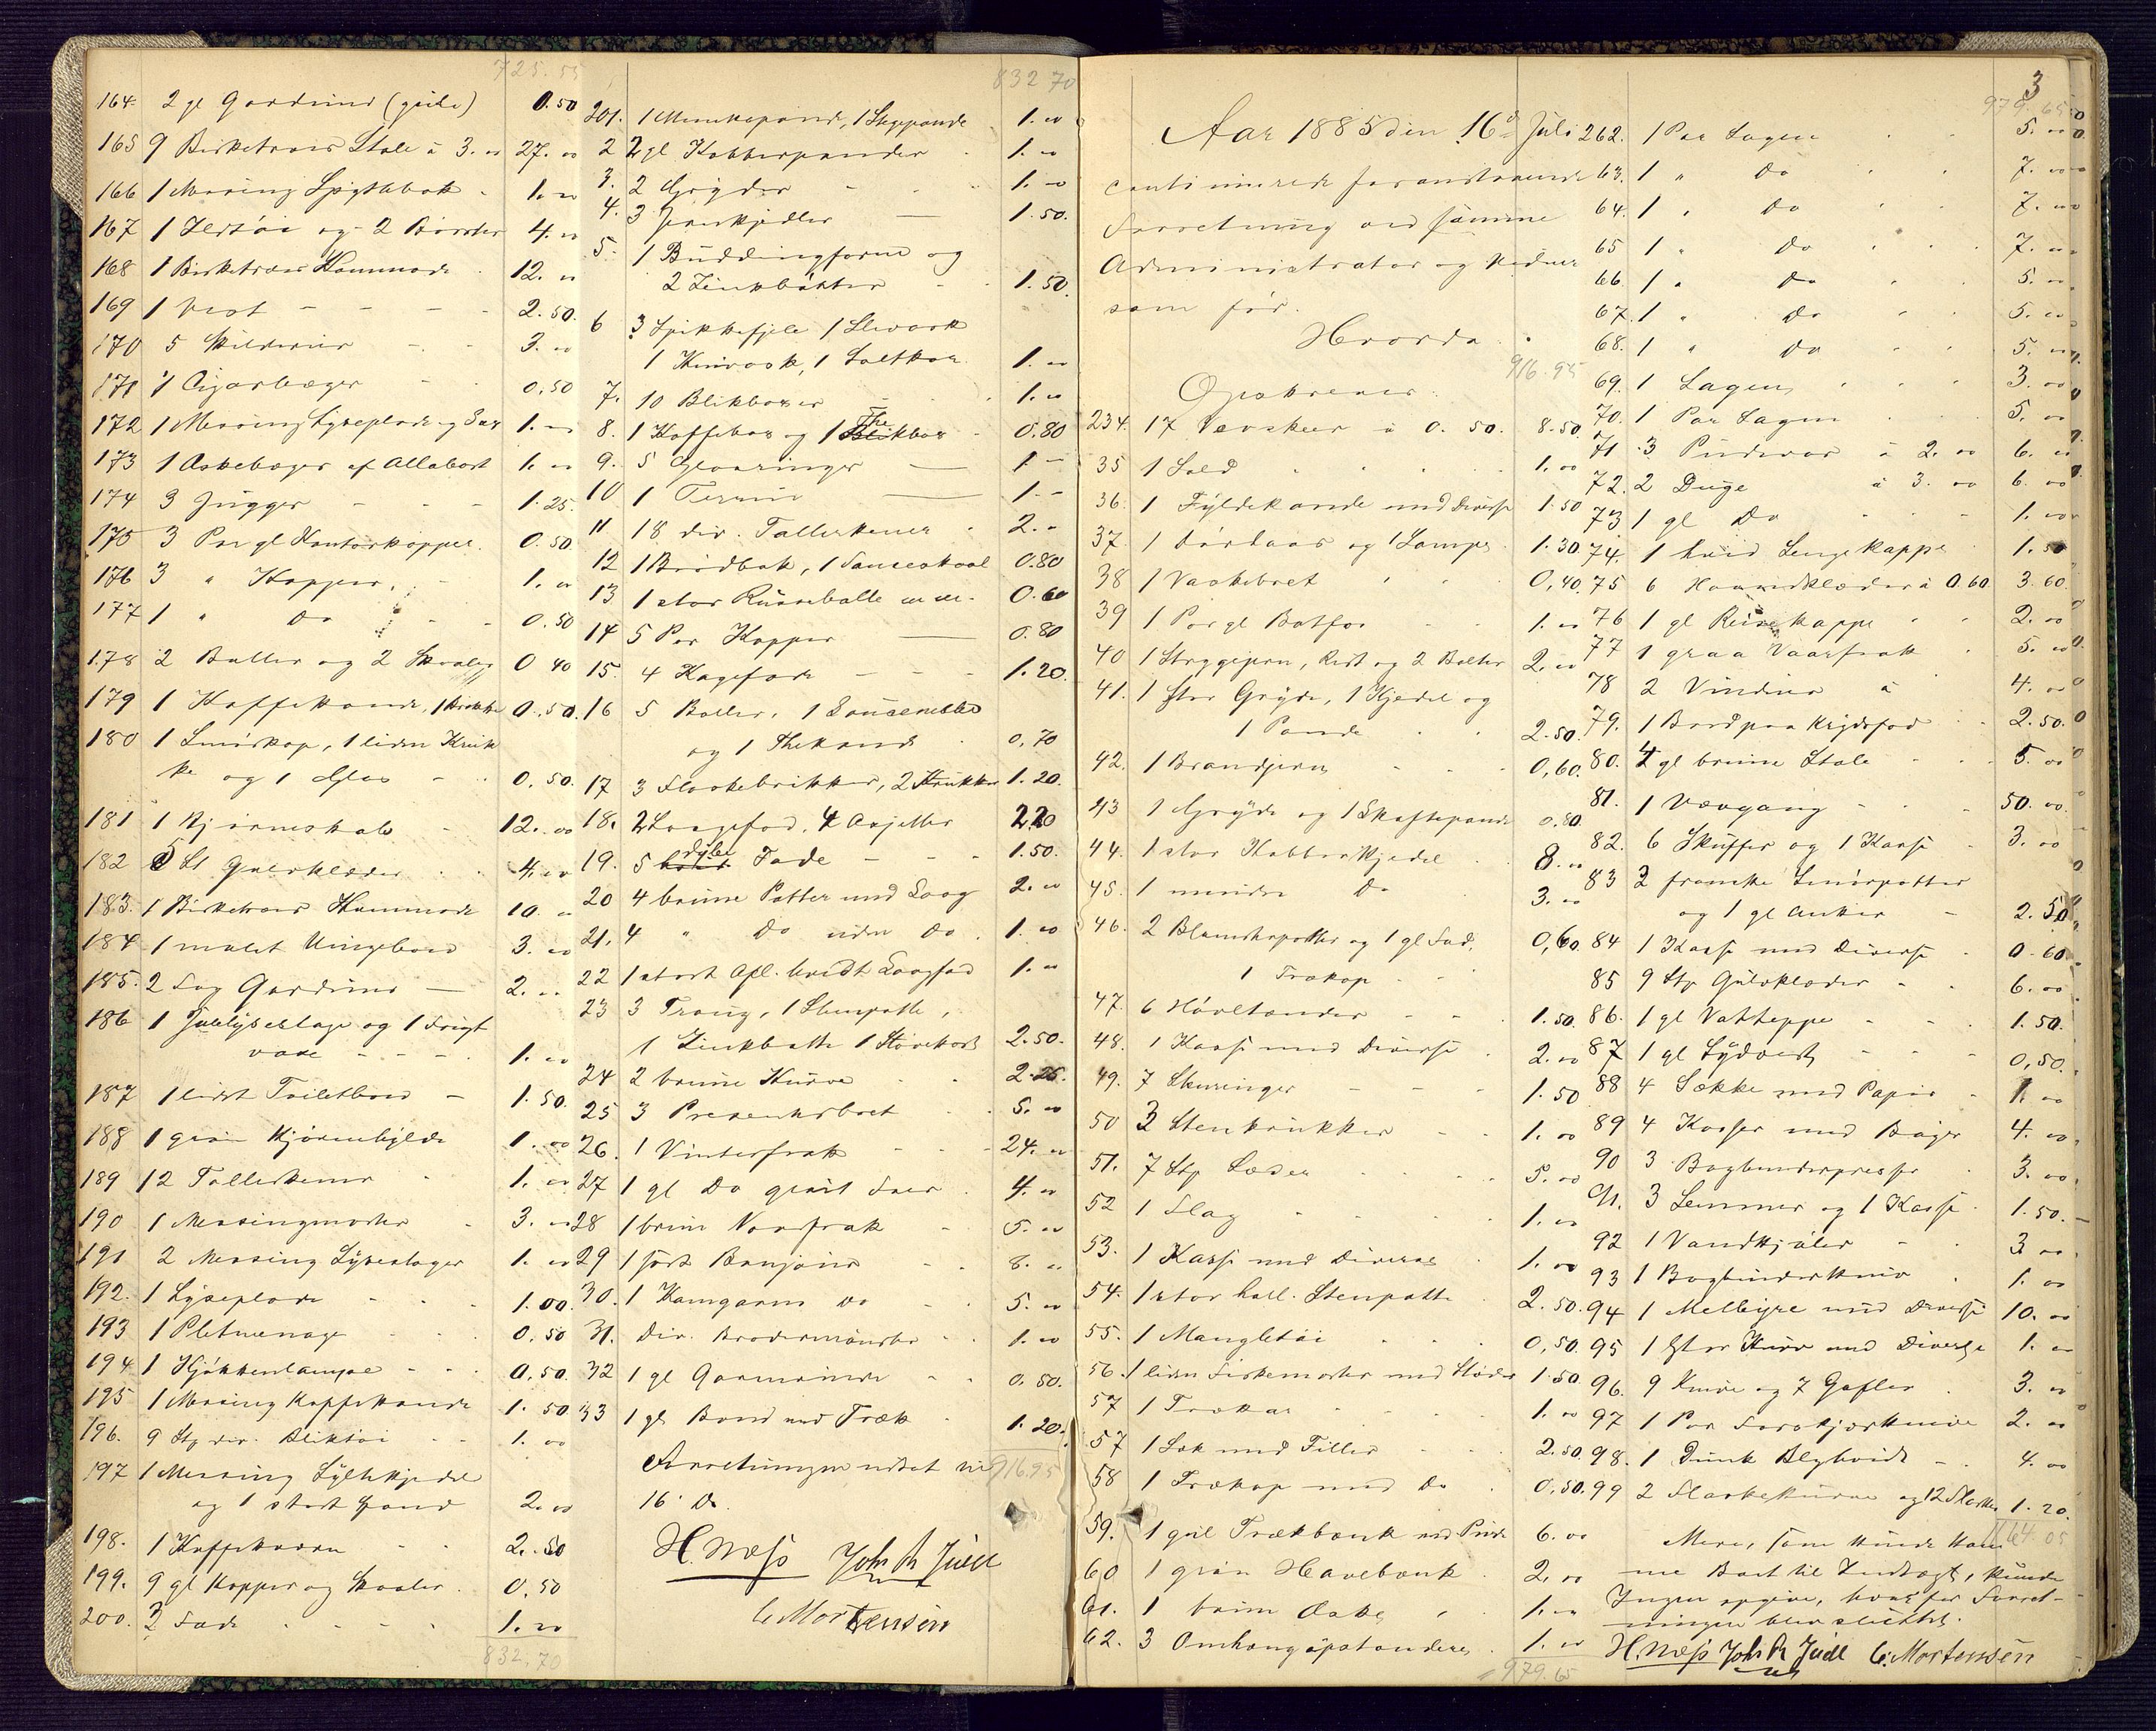 725.55
164. 2 gl Gardiner (gule) 0.50
165 9 Birketræes Stole à 3.00 27.00
166 1 Messing Spyttebak 1.00
167 1 Ildtøi og 2 Børster 4.00
168 1 Birketræes Kommode 12.00
169 1 - - - - 2.50.
170 5 Skilderier - - 3.00
171 1 Cigarbæger - 0.50
172 1 Messing Lyseplade og Sax 1.00
173 1 Askebæger af Allabast 1.00
174 3 Jugger - - - 1.25.
175 3 Par gl Kopper. 0.50.
176 3 " Kopper. - 1.00
177 1 " Do - - 0.50
178 2 Boller og 2 Skaaler 0 40
179 1 Kaffekande, 1 Krukke 0.50.
180 1 Smørkop, 1 liden Kruk
ke og 1 Glas - .. 0.50.
181 1 12.00
182 5 St Gulvklæder . . 4.00
183. 1 Birketræes Kommode 10.00
184 1 malet Vingebord 3.00
185. 2 Fag Gardiner — 2.00
186 1 Julelysestage og 1 Frugt
vase - - - - 1.00
187 1 lidet Toiletbord - 1.50.
188 1 grøn 1.00
189 12 Tallerkener 1.00
190 1 Messingmorter 3.00
191 2 Messing Lysestager 1.00
192. 1 Lyseplade - - - 1.00.
193 1 Pletmenage - - 0.50
194. 1 Kjøkkenlampe - - - 0.50.
195 1 Messing Kaffekande 1.50
196. 9 Stp div. Bliktøi - - 1.00
197 1 Messing Syltekjedel
og 1 stort Spand 2.00
198. 1 Kaffekværn - - 2.50
199. 9 gl Kopper og Skaaler. 0.50
200. 3 Fade - - - - 1.00
832,70
832 70
201. 1 Munkepande, 1 Stegepande 1.00
2 2 gl Kobberpander 1.00
3. 2 Gryder - - - 1.00
4. 3 Jernkjedler — 1.50.
5. 1 Buddingform og
2 Zinkbøtter - - 1.50.
6 3 Spikkefjele 1
1 Knivask, 1 Saltkar 1.00
7. 10 Blikboxer - - 1.00
8. 1 Kaffebox og 1 Thebox - 0.80
9. 5 — 1 -
10 1 Terrin — 1.-
11 18 div. Tallerkener - 2.-
12 1 Brødbak, 1 Sauceskaal 0.80
13 1 stor Russebolle m.m. 0.60
14 5 Par Kopper — 0.80
15. 4 Kagefade - - - 1.20.
16 5 Boller, 1
og 1 Thekande - 0,70
17 3 Flaskebrikker, 2 Krukker 1.20.
18. 2 Laagefad, 4 Asjetter 2.20
19. 5 dybe Fade - - - 1.50.
20 4 brune Potter med Laag 2.00
21. 4 " Do uden Do. 1.00
22 1 stort Afl. hvidt Laagfad 1.00
23 3 Traug, 1 Stenpotte,
1 Zinkbøtte 1 2.50.
24 2 brune Kurve - - 2.25.
25 3 Presenterbret - 5.00
26. 1 Vinterfrak - - - 24.00
27 1 gl Do graat Foer - 4.00
28 1 brun Vaarfrak - 5.00
29 1 sort Bonjour - 8.00
30. 1 Kamgarns Do - 5.00
31. Div. Brodermønster - - 1.00
32 1 gl - - 0.50.
33 1 gl Bord med Træk 1.20.
Forretningen udsat til 916.95
16. Ds.
H. Næss John R Juell
C. Mortensen
Aar 1885 den 16d Juli
continuerede foranstaaende
Forretning ved samme
Administrator og Vidner
som før.
Hvorda
Opskreves. 916.95
234. 17 Vævskeer à 0.50. 8.50.
35 1 Sold 1.00
36. 1 Fyldekande med Diverse 1.50
37. 1 Dørlaas og 1 Lampe 1.30.
38 1 Vaskebret 0,40.
39 1 Par gl Botfor 1.00
40 1 Strygejern, Rist og 2 Bolter 2.00
41. 1 Stor Gryde, 1 Kjedel og
1 Pande . . 2.50.
42. 1 Brandjern - - 0,60.
43 1 Gryde og 1 Skaftepande 0.80.
44. 1 stor Kobberkjedel 8.00
45. 1 mindre Do 3.00
46. 2 Blomsterpotter og 1 gl Fad, 0,60.
1 Trækop - -
47. 6 Høvltænder - - 1.50.
48. 1 Kasse med Diverse 2.00
49. 7 - - - 1.50
50 3 Stenkrukker - - 1.00
51. 7 Stp Læder 5.00
52 1 Flag - 1.00
53. 1 Kasse med Diverse 1.00
54. 1 stor holl. Stenpotte 2.50.
55. 1 Mangletøi 0,50.
56. 1 liden Fiskemorter med Støder 1.50.
57 1 Trækar - - - 1.00
57 1 Sæk med Filler - 2.50.
58 1 Trækop med Do 0.50.
59. 1 gul Trækbænk med Pude 6.00
60 1 grøn Havebænk. 2.00
61. 1 brun Æske 1.00
62. 3 Omhængsstandere 1.00
979.65
3
979.65
262. 1 Par Lagen 5.00
63. 1 " Do 7.00
64. 1 " Do 7.00
65 1 " Do 7.00
66. 1 " Do 5.00
67. 1 " Do 5.00
68. 1 " Do 5.00
69. 1 Lagen 3.00
70. 1 Par Lagen 5.00
71 3 Pudevar à 2.00 6.00
72. 2 Duge à 3.00 6.00
73 1 gl Do 1.00
74. 1 hvid Sengekappe 1.50
75 6 Haandklæder à 0.60 3.60.
76 1 gl Reisekappe 2.00
77 1 graa Vaarfrak 5.00
78 2 Vinduer à 4.00
79. 1 Bord paa Krydsfod 2.50.
80. 4 gl brune Stole 5.00
81. 1 Vævgang - - - 50.00
82. 6 Skuffer og 1 Kasse 3.00
83 2 franske Smørpotter
og 1 gl Anker - 2.50
84 1 Kasse med Diverse 0.60
85 9 Stp Gulvklæder - - 6.00
86. 1 gl Vatteppe - - 1.50.
87 1 gl Sydvest - - 0,50.
88 4 Sække med Papir - 1.00
89 4 Kasser med Bøger 4.00
90 3 Bogbinderpresser 3.00
91. 3 Lemmer og 1 Kasse 1.50.
92 1 Vandkjøler - 3.00
93 1 Bogbinderkniv 1.00
94 1 Melbyre med Diverse 10.00
95 1 Stor Kurv med Diverse 1.00
96. 9 Knive og 7 Gafler 3.00
97 1 Par Forskjærknive 2.00
98. 1 Dunk Blyhvidt - 4.00
99 2 Flaskekurve og 12 Flasker 1.20.
1164.05
Mere, som kunde kom
me Boet til Indtægt, kunde
Ingen opgive, hvorfor Forret-
ningen blev sluttet.
H. Næss John R Juell C. Mortensen